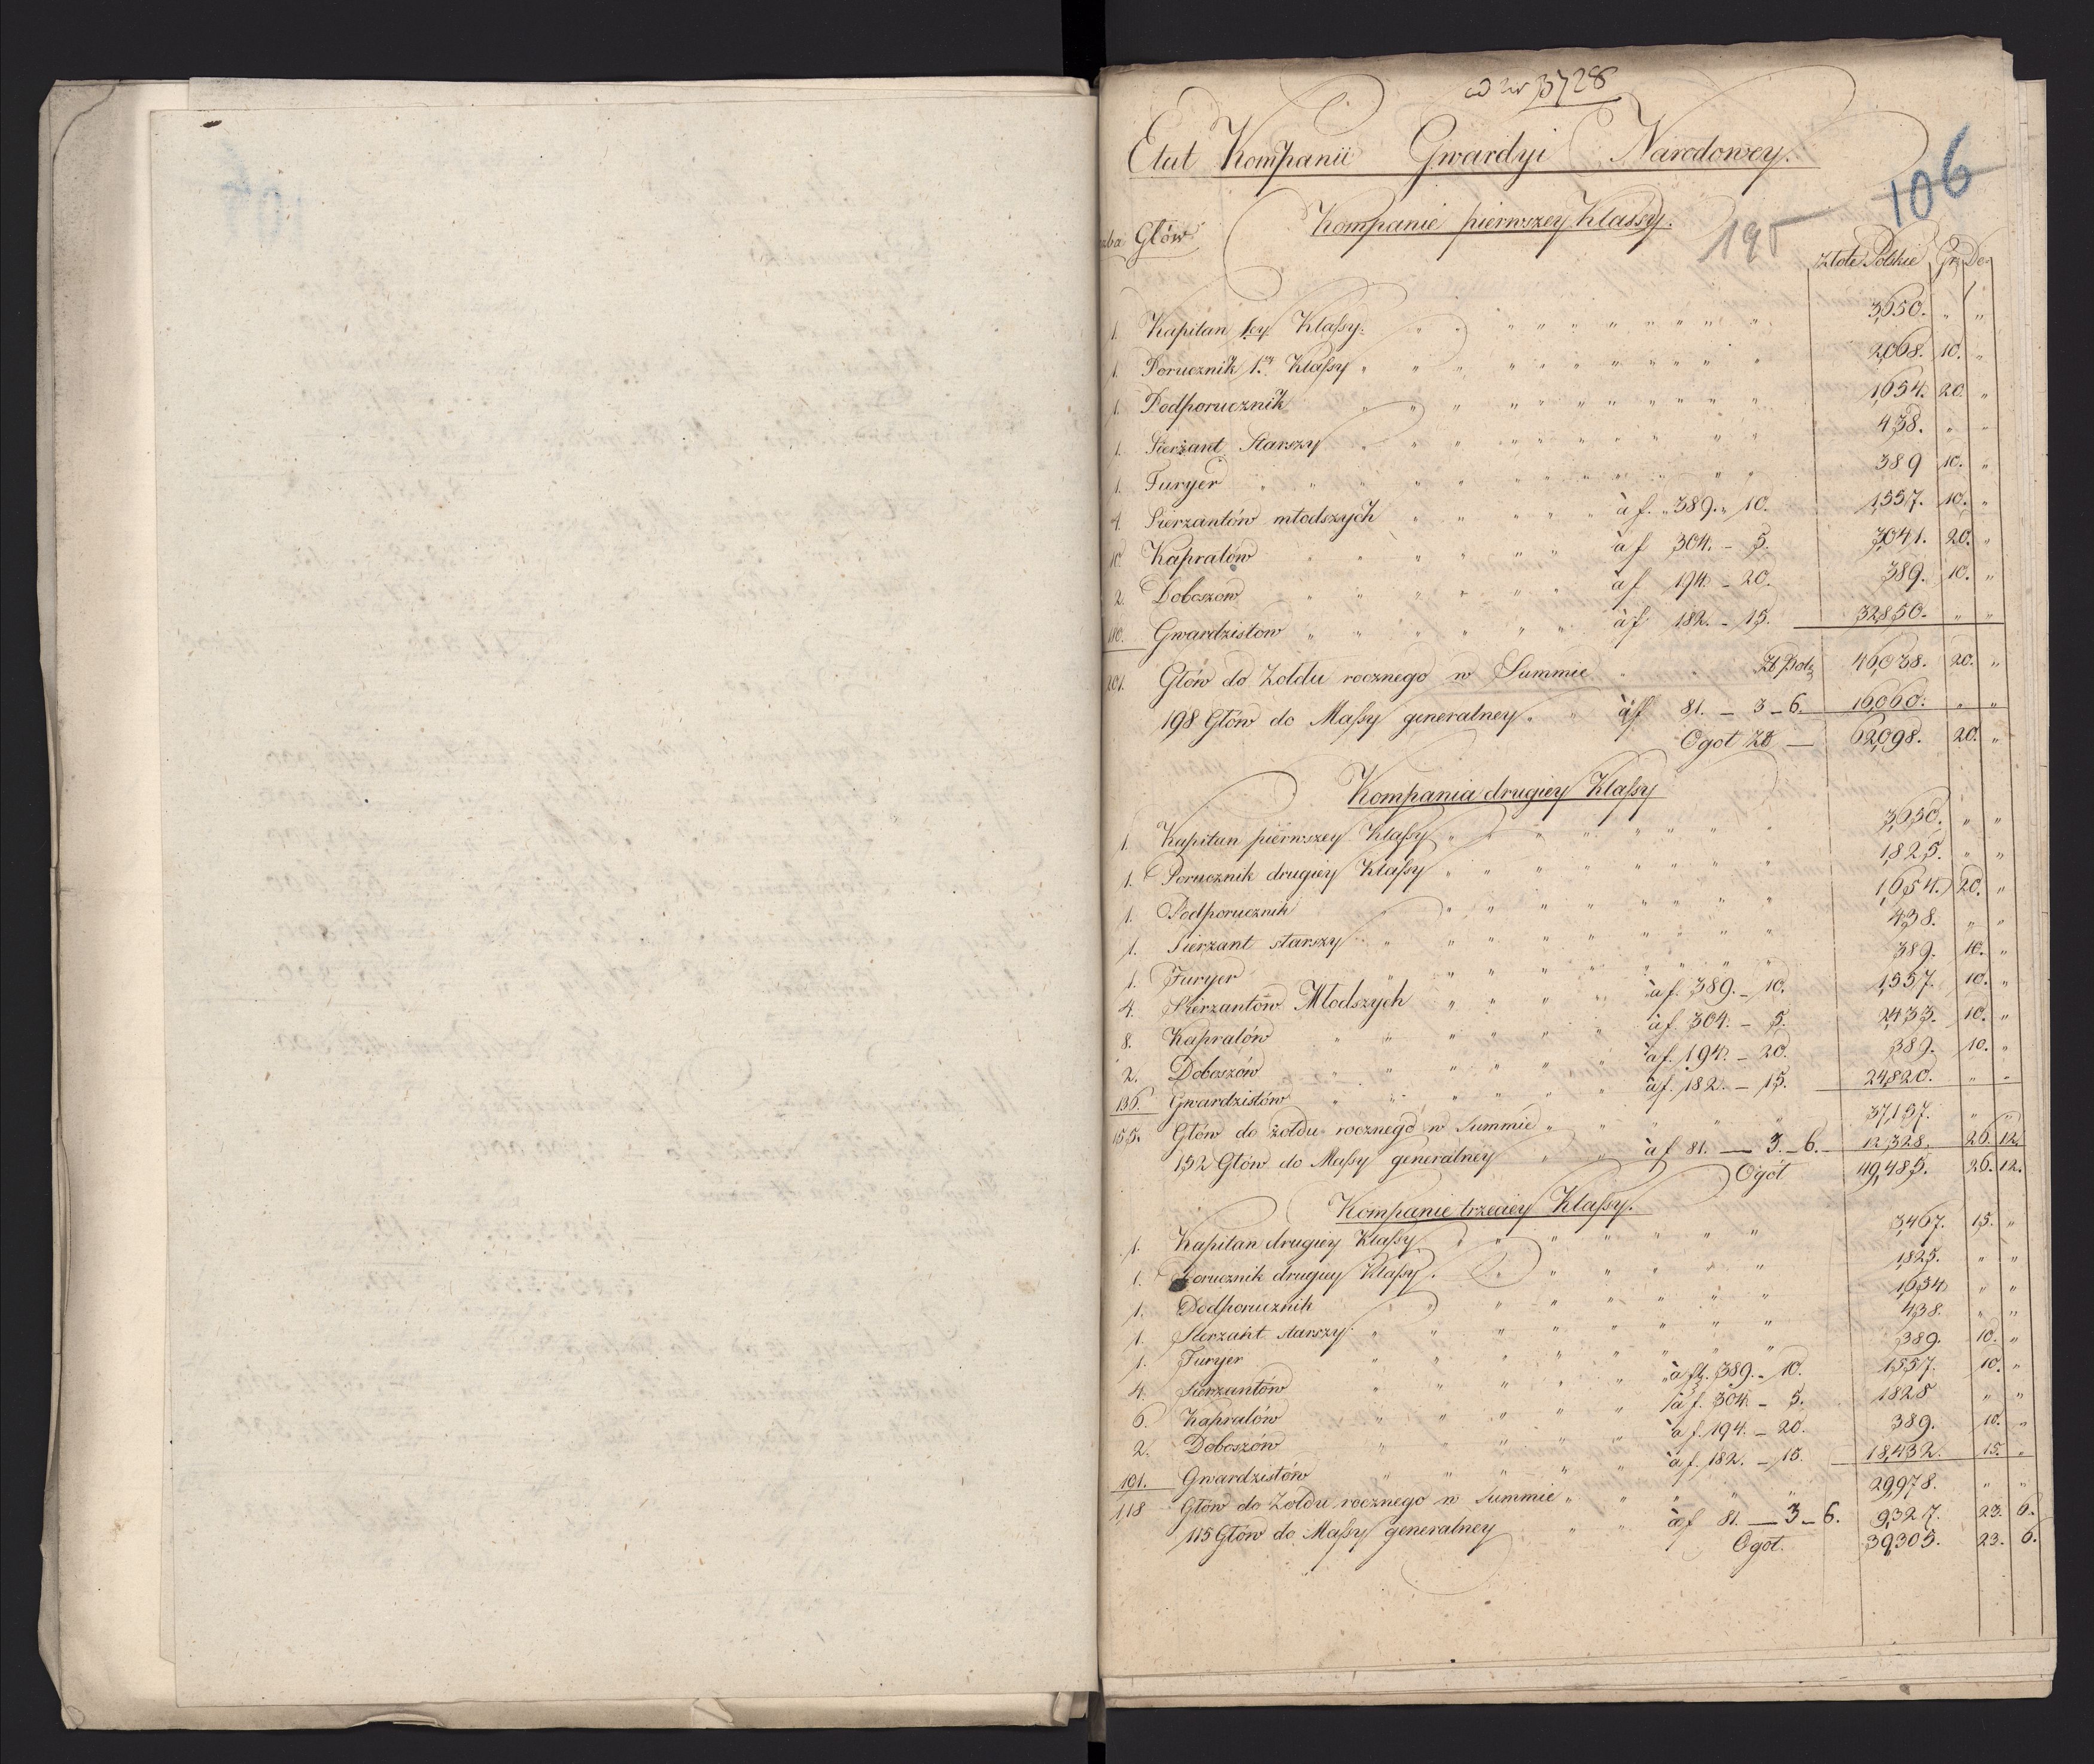 ad nr 3728
Etat Kompanii Gwardyi Narodowey.
106
195
Kompanie pierwszey Klassy.
Głów
złote Polskie Gr De
1. Kapitan 1ey Klassy. 3,650. " "
1. Porucznik 1ey Klassy 2,068. 10. "
1. Podporucznik 1,654. 20. "
1. Sierżant Starszy 438. " "
1. Furyer 389 10. "
4. Sierzantów młodszych à f. 389. " 10. 1,557. 10. "
10. Kapralów à f 304. - 5. 3,041. 20. "
2. Doboszow à f 194. - 20. 389. 10. "
180. Gwardzistow à f 182. - 15. 32,850. " "
201. Głów do Zołdu rocznego w Summie 46,038. 20. "
198 Głów do Massy generalney à f 81. - 3 - 6. 16,060. " "
Ogół Zł — 62,098. 20. "
Kompania drugiey Klassy
1. Kapitan pierwszey Klassy 3,650. " "
1. Porucznik drugiey Klassy 1,825. " "
1. Podporucznik 1,654. 20. "
1. Sierzant starszy 438. " "
1. Furyer 389. 10. "
4. Sierzantów Młodszych à f. 389. - 10. 1,557. 10. "
8. Kapralów à f. 304. - 5. 2,433. 10. "
2. Doboszów à f. 194. - 20. 389. 10. "
136. Gwardzistów à f. 182. - 15. 24,820. " "
155. Głów do żołdu rocznego w Summie 37,157. " "
152 Głów do Massy generalney à f 81. — 3. - 6. 12,328. 26. 12.
Ogół 49,485. 26. 12.
Kompanie trzeciey Klassy.
1. Kapitan drugiey Klassy 3,467. 15. "
1. Porucznik drugiey Klassy. 1,825. " "
1. Podporucznik 1,654 " "
1. Sierzant starszy 438. " "
1. Furyer 389. 10. "
4. Sierzantów à f. 389. - 10. 1,557. 10. "
6. Kapralów à f. 304. - 5. 1828 " "
2. Doboszów à f. 194. - 20. 389. 10. "
101. Gwardzistów à f. 182. - 15. 18,432. 15. "
118 Głów do Zołdu rocznego w Summie 29,978. " "
115 Głów do Massy generalney à f 81. — 3 - 6. 9,327. 23. 6.
Ogół. 39,305. 23. 6.